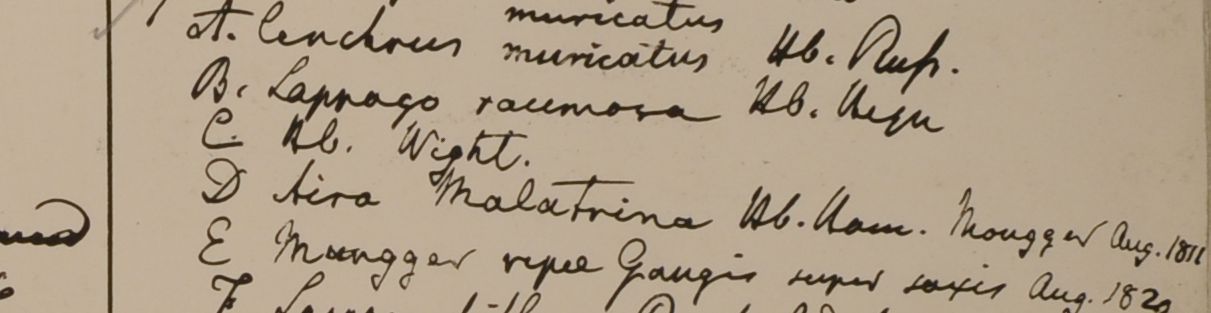 muricatus
A. Cenchrus muricatus Hb. Russ.
B. Lappago racemosa Hb. Heyn
C. Hb. Wight.
D Aira Malatrina Hb. Ham. Mongger Aug. 1811
E Mungger ripae Gangis super saxis Aug. 182
F